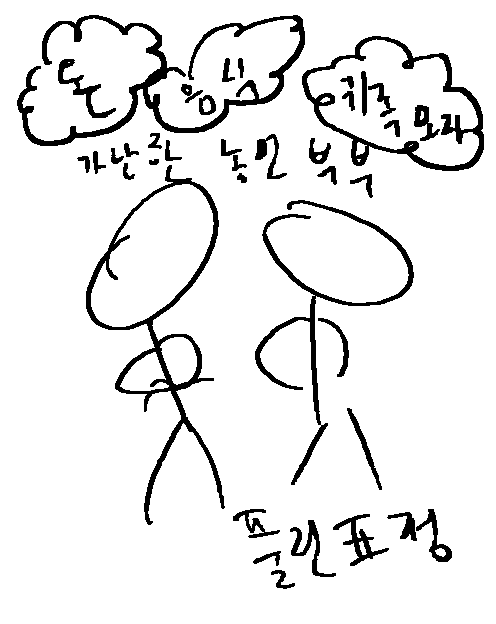 돈
음식
귀족 모자
가난한 농민 부부
플린표정